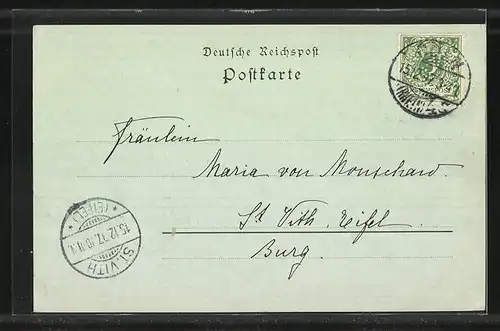 Deutsche Reichspost
Postkarte
Fräulein
Maria von Monschaw.
St Vith. Eifel.
Burg.
ST. VITH
15.12.97. 10-11.V.
* (EIFEL) *